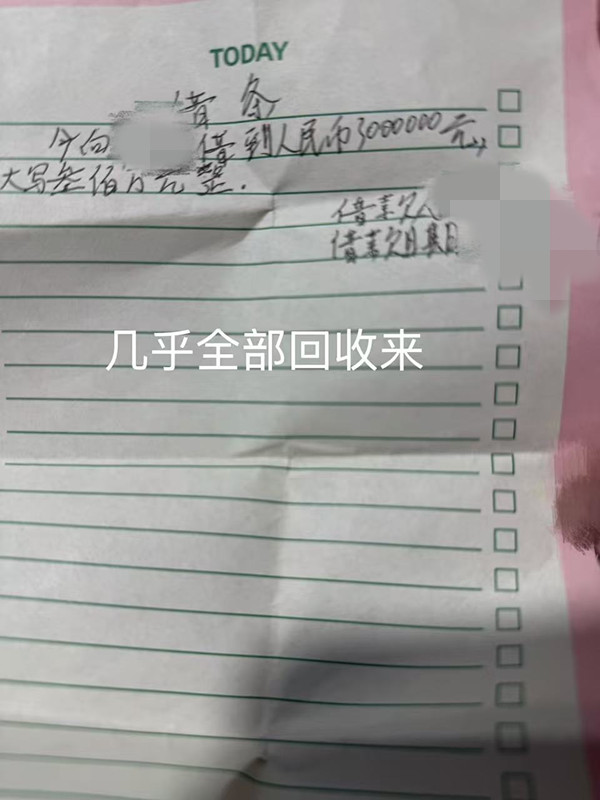 TODAY
借条
今向 借到人民币3000000元,
大写叁佰万元整.
借款人
借款日期
几乎全部回收来